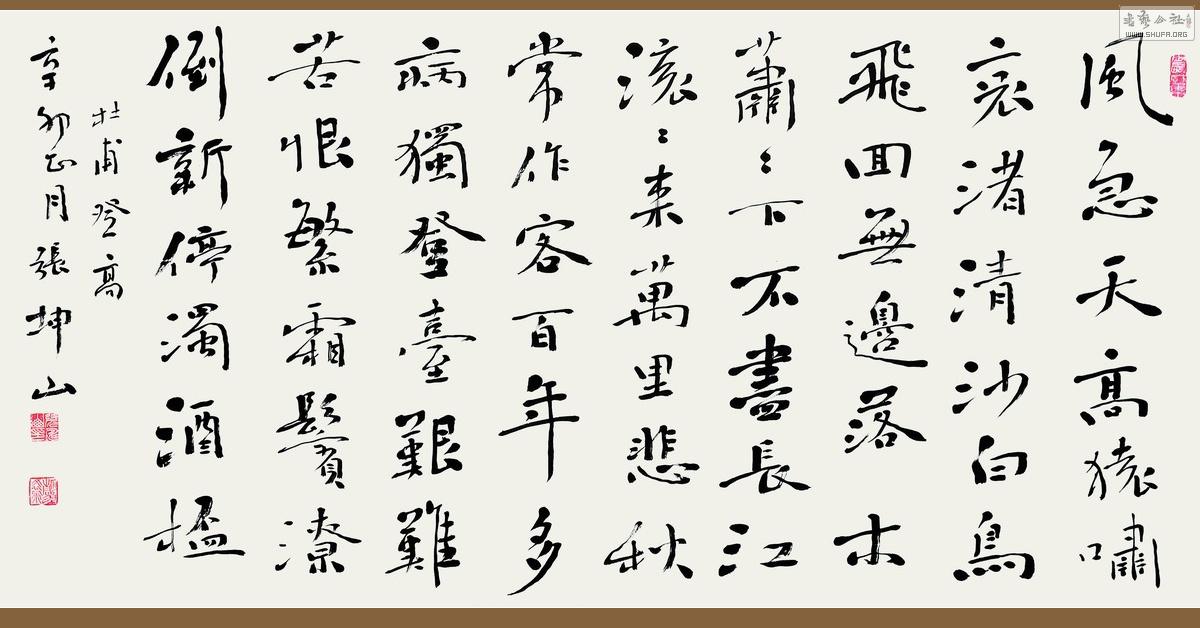 風急天高猿嘯
哀渚清沙白鳥
飛回無邊落木
蕭〻下不盡長江
滾〻來萬里悲秋
常作客百年多
病獨登臺艱難
苦恨繁霜鬢潦
倒新停濁酒杯
杜甫登高
辛卯正月張坤山
书艺公社
WWW.SHUFA.ORG